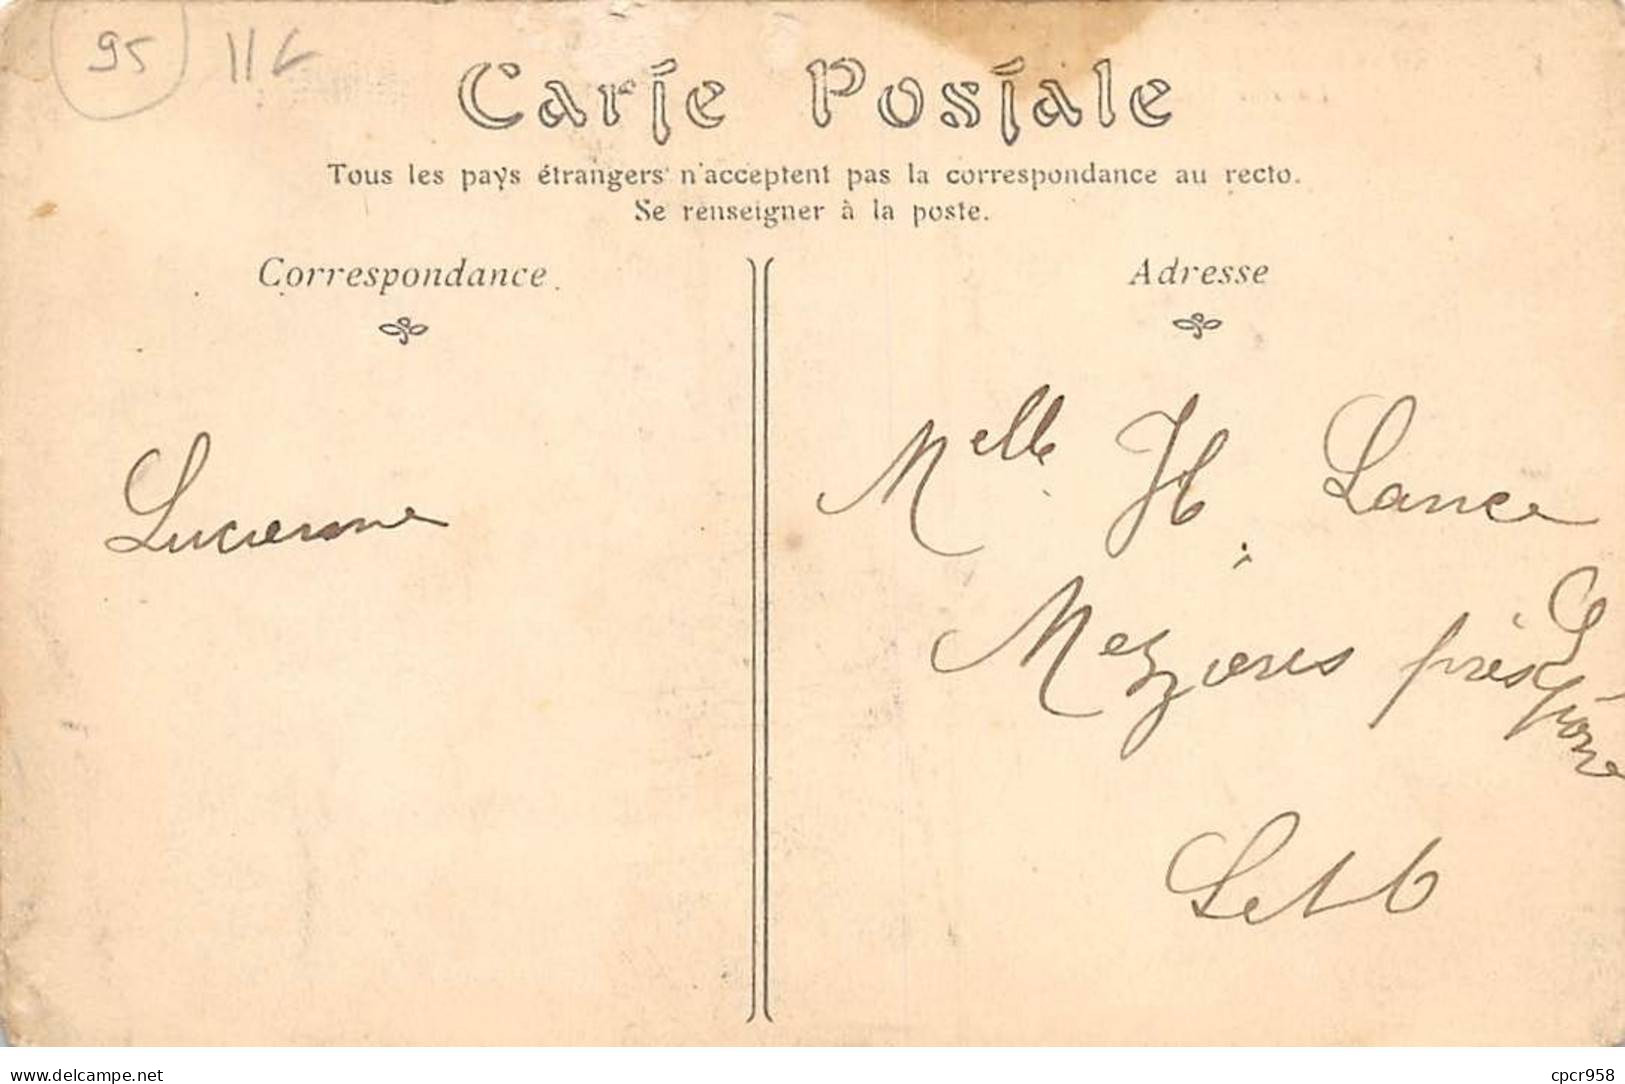 95 116
Carte Postale
Tous les pays étrangers n'acceptent pas la correspondance au recto.
Se renseigner à la poste.
Correspondance
Adresse
Lucienne
Melle H. Lance
Mezieres près Epône
S et O
delcampe.net
cpcr958